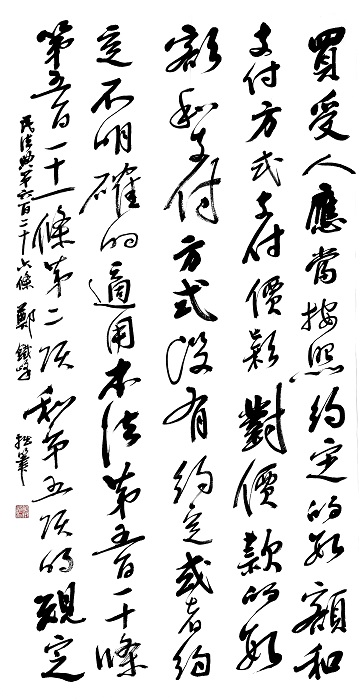 買受人應當按照約定的数額和
支付方式支付價款對價款的数
額和支付方式没有約定或者約
定不明確的適用本法第五百一十條
第五百一十一條第二项和第五项的規定
民法典第六百二十六條 鄭鐵峰 拙筆